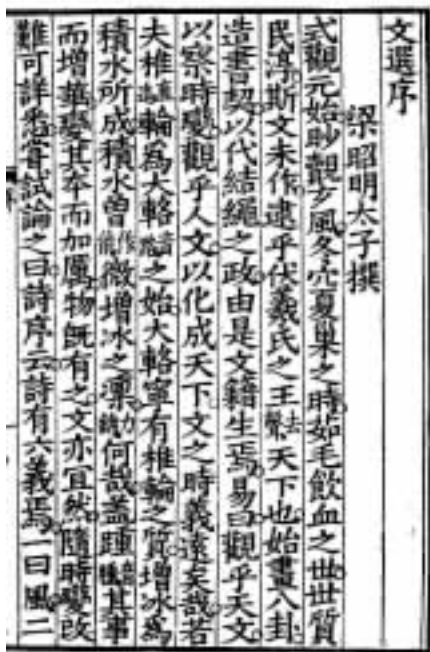 文選序
梁昭明太子撰
式觀元始眇覿玄風冬穴夏巢之時茹毛飲血之世世質
民淳斯文未作逮乎伏羲氏之王去聲天下也始畫八卦
造書契以代結繩之政由是文籍生焉易曰觀乎天文
以察時變觀乎人文以化成天下文之時義遠矣哉若
夫椎輪爲大輅之始大輅寧有椎輪之質增冰爲
積水所成積水曾微增冰之凜何哉蓋踵其事
而增華變其本而加厲物旣有之文亦宜然隨時變改
難可詳悉嘗試論之曰詩序云詩有六義焉一曰風二